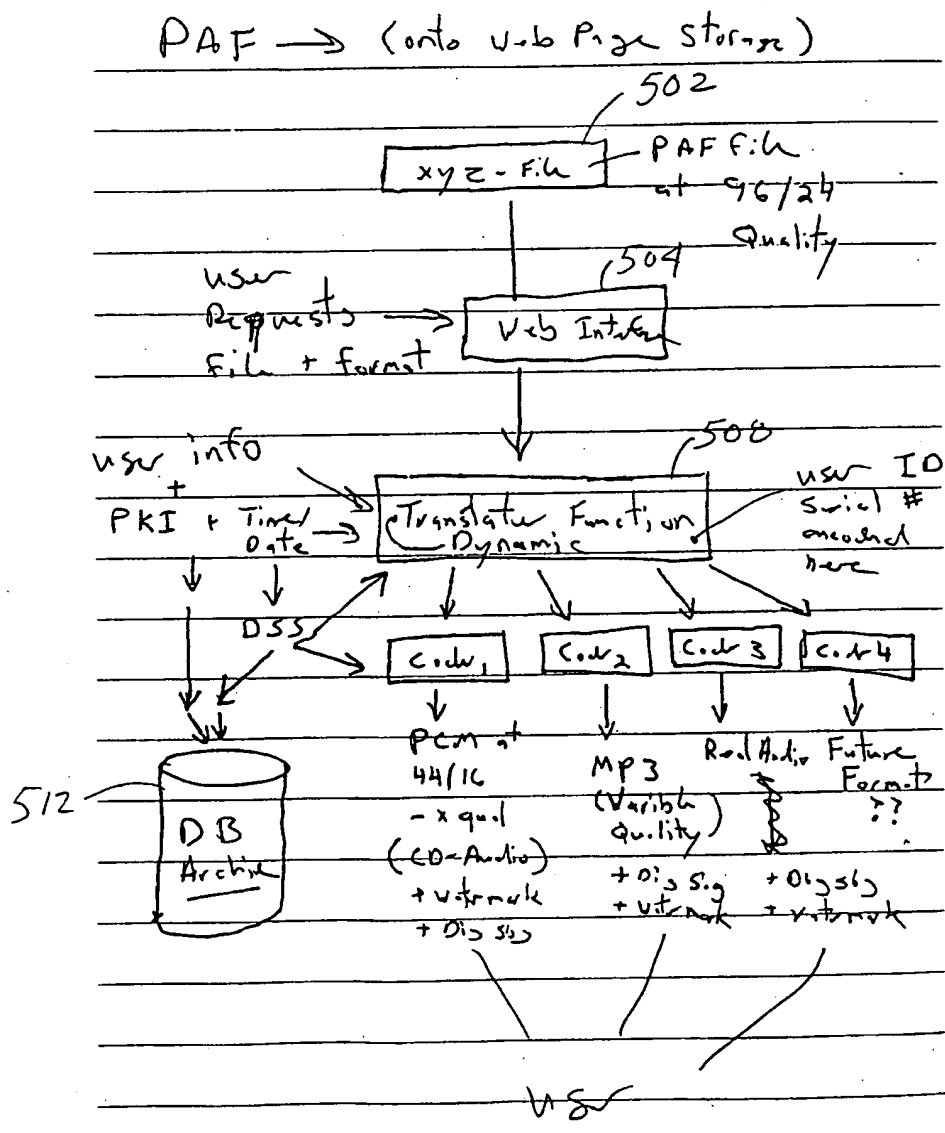 PAF → (onto Web Page Storage)
502
xyz-File
PAF file
at 96/24
Quality
504
User
Requests
File + format
Web Interface
508
user info
+
PKI + Time/
Date
Translator Function
Dynamic
user ID
Serial #
encoded
here
DSS
Coder 1
Coder 2
Coder 3
Coder 4
PCM at
44/16
- x qual
(CD-Audio)
+ watermark
+ Dig sig
MP3
(Variable
Quality)
+ Dig Sig
+ Watermark
Real Audio
+ Dig sig
+ watermark
Future
Format
??
512
DB
Archive
User